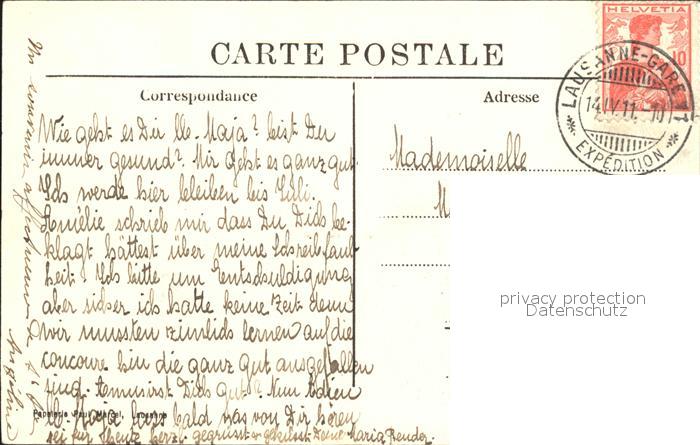 HELVETIA
10
CARTE POSTALE
LAUSANNE-GARE
14.IV.11.-10
EXPÉDITION
Correspondance
Adresse
Wie geht es Dir lb. Maja? bist Du
immer gesund? Mir geht es ganz gut.
Ich werde hier bleiben bis Juli.
Amélie schrieb mir dass Du Dich be-
klagt hättest über meine Schreibfaul-
heit! Ich bitte um Entschuldigung
aber sicher ich hatte keine Zeit denn
wir mussten ziemlich lernen auf die
concours hin die ganz gut ausgefallen
sind. Amusirst Dich gut? Nun adieu
lb. Maja lass bald was von Dir hören
sei für heute herzl. gegrüsst & geküsst Deine Maria
Mademoiselle
M
Un souvenir affectueux
Papeterie Paul Marcel, Lausanne
privacy protection
Datenschutz